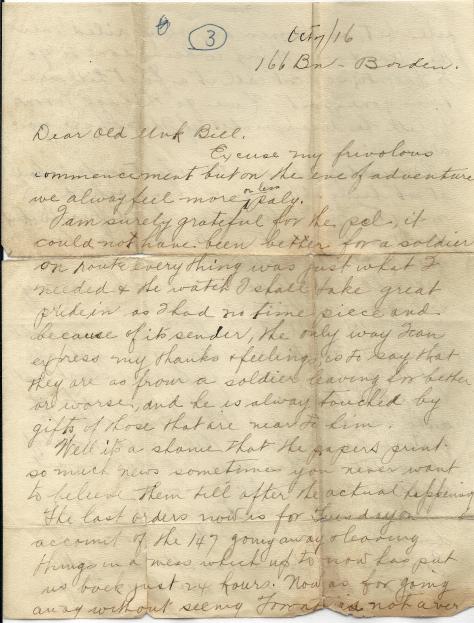 3
Oct 7/16
166 Bn - Borden.
Dear Old Unk Bill.
Excuse my frivolous
commencement but on the eve of adventure
we alway feel more or less
I am surely grateful for the pcl it
could not have been better for a soldier
on route every thing was just what I
needed & the watch I shall take great
pride in as I had no time piece and
because of its sender, the only way I can
express my thanks & feelings, is to say that
they are as from a soldier leaving for better
or worse, and he is alway touched by
gifts of those that are near to him.
Well it's a shame that the papers print
so much news sometimes you never want
to beleive them till after the actual happening
The last orders now is for Tuesday on
account of the 147 going away & leaving
things in a mess which up to now has put
us back just 24 hours. Now as for going
away without seeing is not a ver